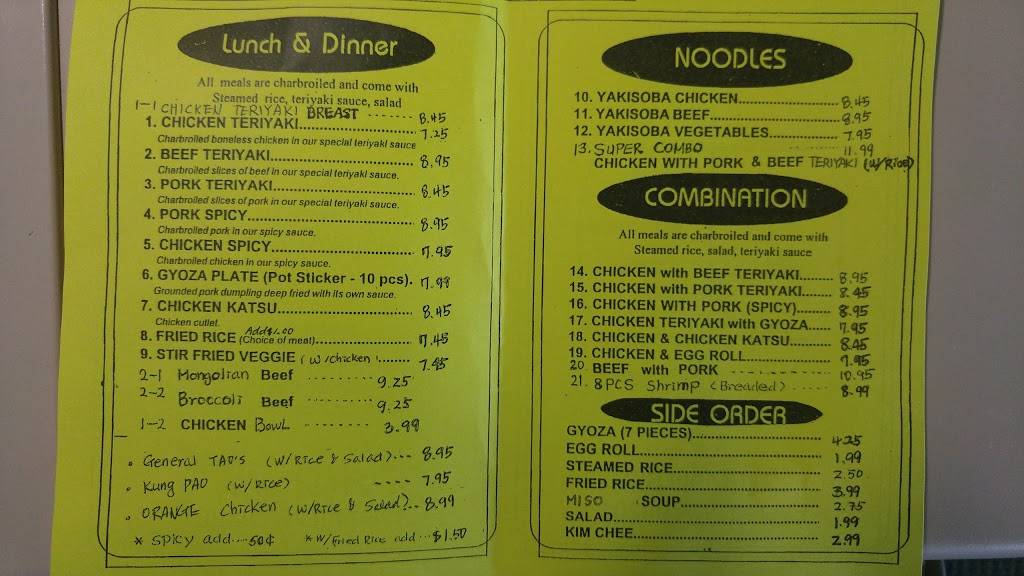 Lunch & Dinner
All meals are charbroiled and come with
Steamed rice, teriyaki sauce, salad
1-1 CHICKEN TERIYAKI BREAST ------ 8.45
1. CHICKEN TERIYAKI........................ 7.25
Charbroiled boneless chicken in our special teriyaki sauce
2. BEEF TERIYAKI............................. 8.95
Charbroiled slices of beef in our special teriyaki sauce.
3. PORK TERIYAKI............................ 8.45
Charbroiled slices of pork in our special teriyaki sauce.
4. PORK SPICY.................................. 8.95
Charbroiled pork in our spicy sauce.
5. CHICKEN SPICY............................. 7.95
Charbroiled chicken in our spicy sauce.
6. GYOZA PLATE (Pot Sticker - 10 pcs). 7.99
Grounded pork dumpling deep fried with its own sauce.
7. CHICKEN KATSU............................ 8.45
Chicken cutlet.
Add $1.00
8. FRIED RICE (Choice of meat)...................... 7.45
9. STIR FRIED VEGGIE (w/chicken). 7.45
2-1 Mongolian Beef -------- 9.25
2-2 Broccoli Beef -------- 9.25
1-2 CHICKEN BOWL ----- 3.99
• General TAO'S (W/RICE & Salad)--- 8.95
• Kung PAO (W/RICE) ---- 7.95
• ORANGE Chicken (W/RICE & Salad)-- 8.99
* Spicy add....50¢ * W/Fried Rice add...$1.50
NOODLES
10. YAKISOBA CHICKEN........................ 8.45
11. YAKISOBA BEEF.............................. 8.95
12. YAKISOBA VEGETABLES................. 7.95
13. SUPER COMBO -------- 11.99
CHICKEN WITH PORK & BEEF TERIYAKI (W/RICE)
COMBINATION
All meals are charbroiled and come with
Steamed rice, salad, teriyaki sauce
14. CHICKEN with BEEF TERIYAKI........ 8.95
15. CHICKEN with PORK TERIYAKI........ 8.45
16. CHICKEN WITH PORK (SPICY)......... 8.95
17. CHICKEN TERIYAKI with GYOZA...... 7.95
18. CHICKEN & CHICKEN KATSU.......... 8.45
19. CHICKEN & EGG ROLL.................... 7.95
20 BEEF with PORK ---------- 10.95
21. 8PCS Shrimp (Breaded) ----- 8.99
SIDE ORDER
GYOZA (7 PIECES)............................ 4.25
EGG ROLL........................................ 1.99
STEAMED RICE................................. 2.50
FRIED RICE...................................... 3.99
MISO SOUP...................................... 2.75
SALAD............................................. 1.99
KIM CHEE......................................... 2.99